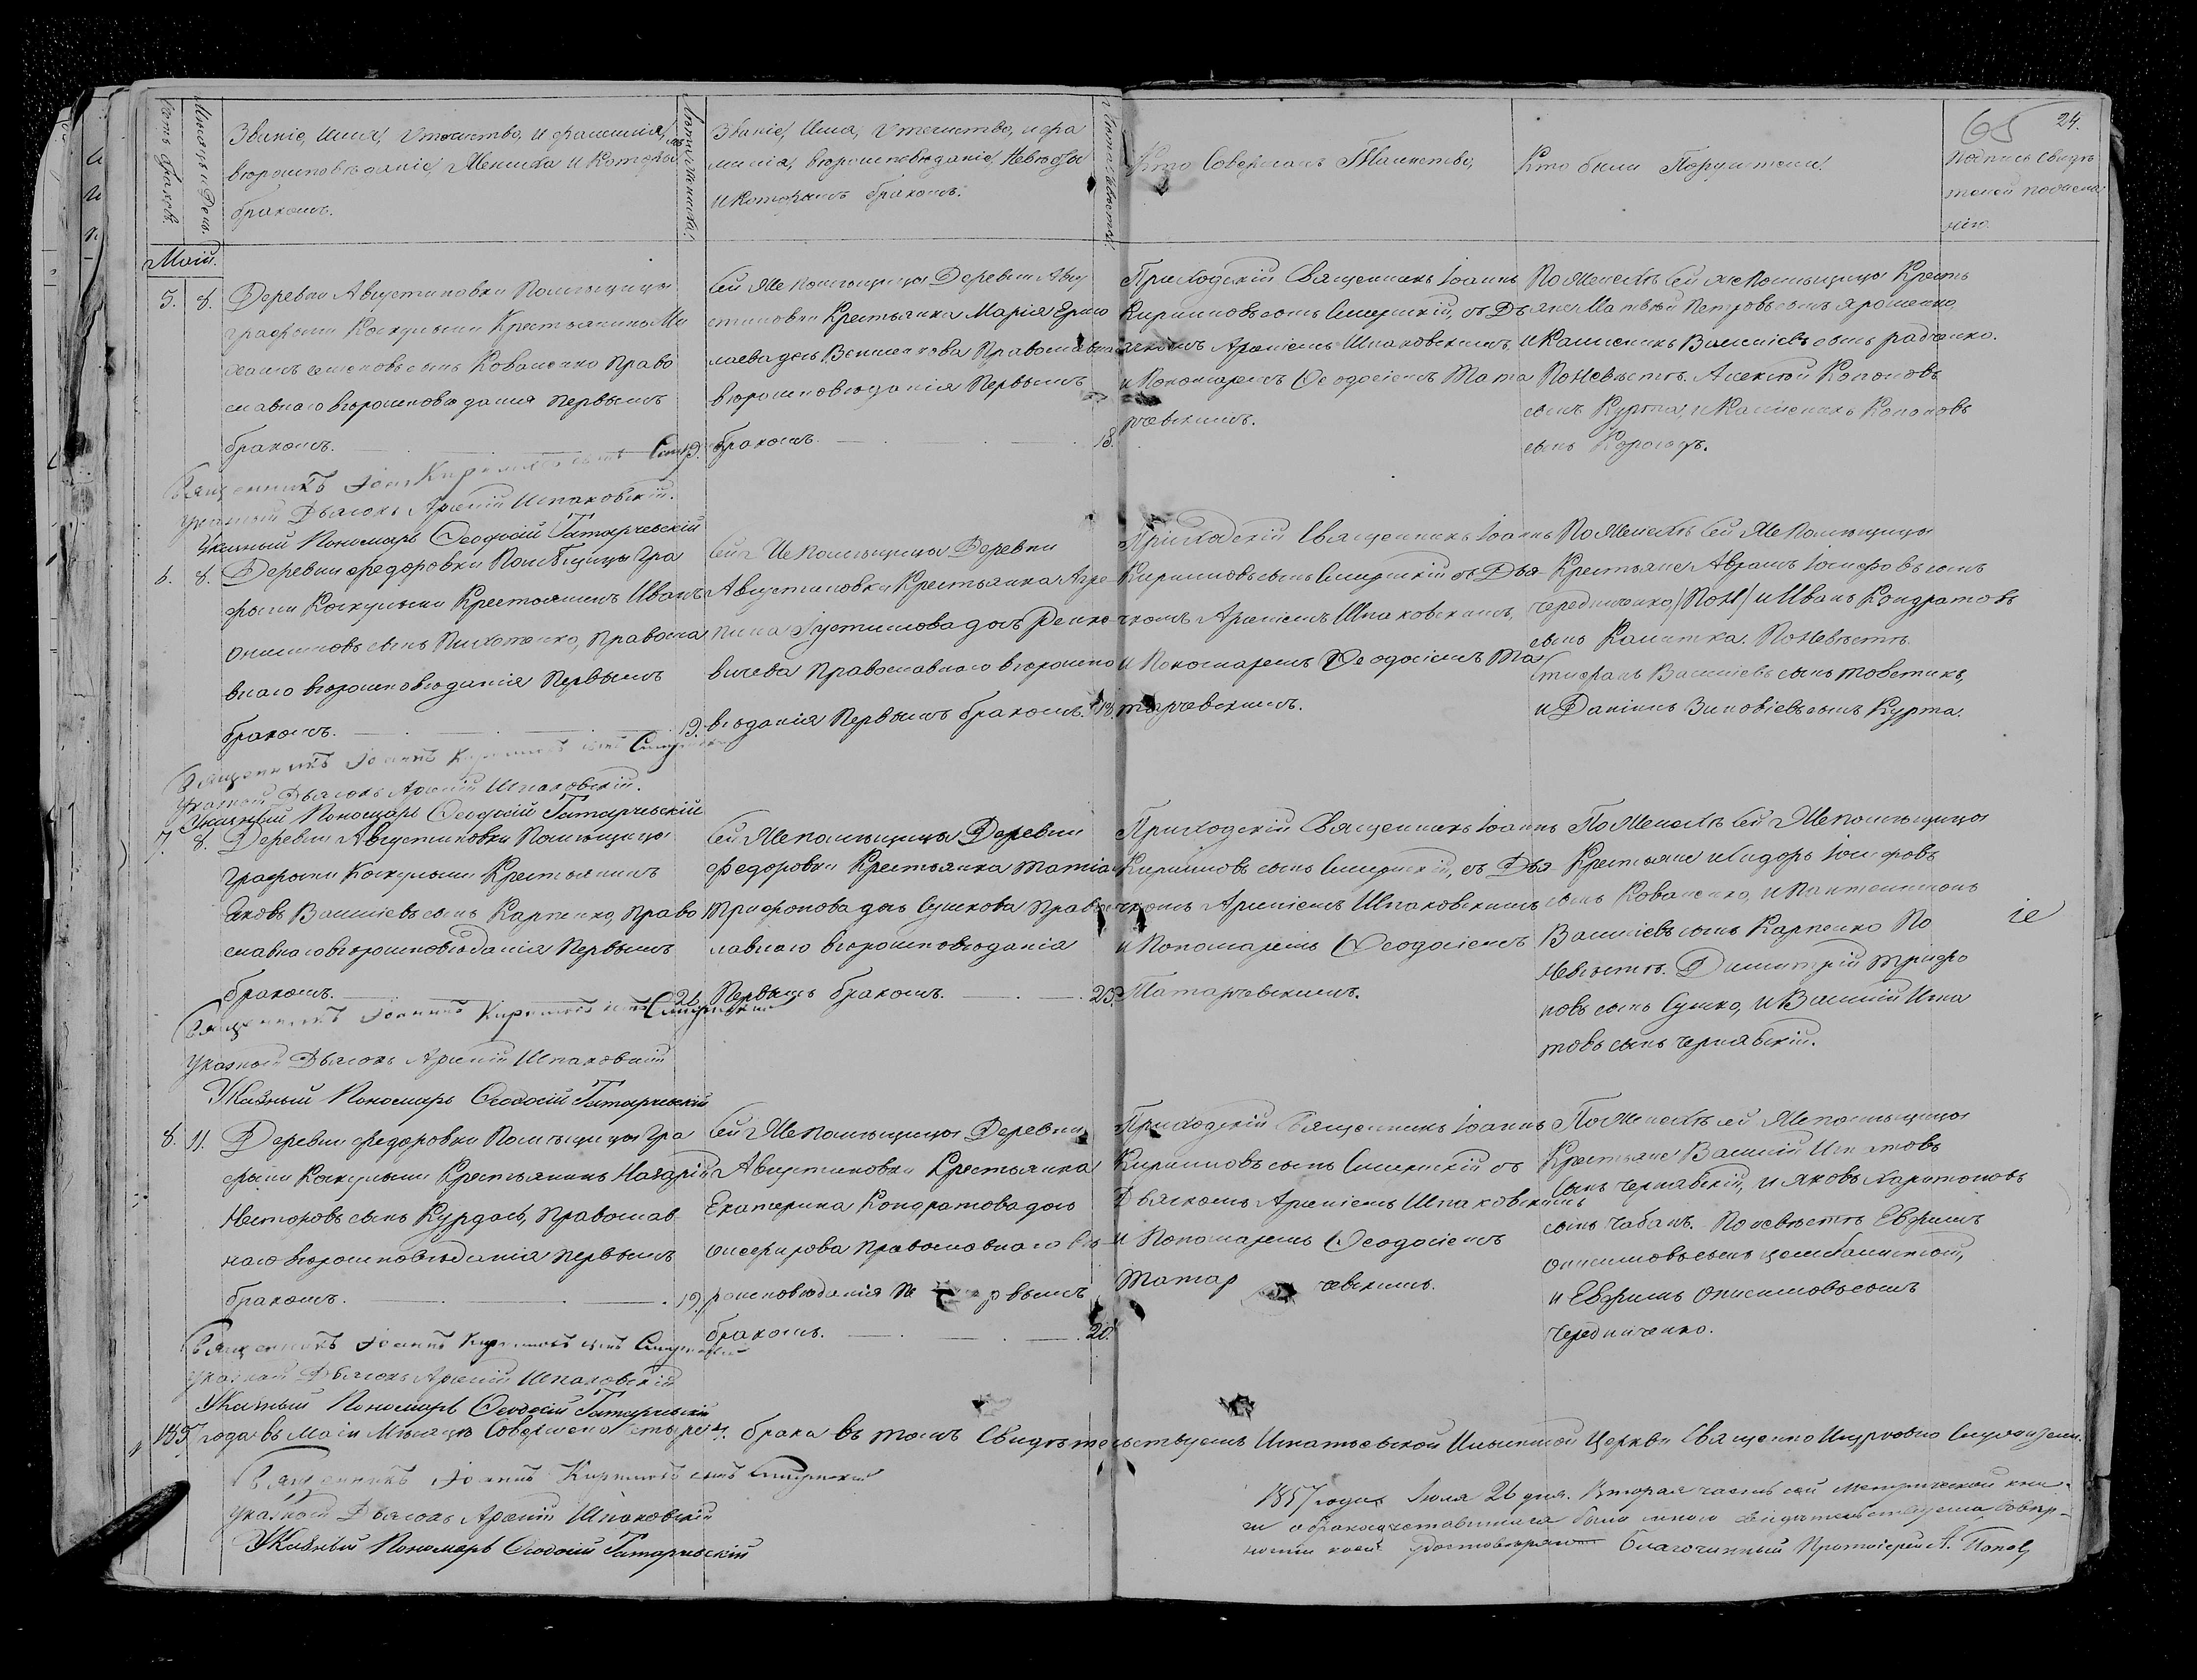 65 24.
Счетъ браковъ.
Мѣсяцъ и День.
Званіе, имя, отечество, и фамилія,
вѣроисповѣданіе Жениха и которымъ
бракомъ.
Лѣта Жениха.
Званіе, имя, отечество, и фа
милія, вѣроисповѣданіе Невѣсты
и которымъ бракомъ.
Лѣта Невѣсты.
Кто Совершалъ Таинство,
Кто были Поручители.
Подпись свидѣ
телей по желанію
Маій.
5. 8. Деревни Августиновки Помѣщицы
Графини Коскулыни Крестьянинъ Ми
хаилъ сынъ Коваленко Право
славнаго вѣроисповѣданія Первымъ
бракомъ. 19.
Сей же Помѣщицы Деревни Авгу
стиновки Крестьянка Марія Ермо
лаева дочь Православнаго
вѣроисповѣданія Первымъ
бракомъ. 18.
Приходскій Священникъ Іоаннъ
Кирилловъ сынъ съ Дья
чкомъ Арсеніемъ Шпаковскимъ,
и Пономаремъ Ѳеодосіемъ Тата
рчевскимъ.
По Женихѣ Сей же Помѣщицы Кресть
яне Матвѣй Петровъ сынъ Ярошенко,
и Василіевъ сынъ Радченко.
По Невѣстѣ. Алексѣй Кононовъ
сынъ Курта, и Кононовъ
сынъ
Священникъ Іоан Кирилловъ сынъ
Указной Дьячокъ Арсеній Шпаковскій.
Указный Пономарь Ѳеодосій Татарчевскій
6. 8. Деревни Федоровки Помѣщицы Гра
фини Коскулыни Крестьянинъ Иванъ
Онисимовъ сынъ Православ
внаго вѣроисповѣданія Первымъ
бракомъ. 19.
Сей же Помѣщицы Деревни
Августиновки Крестьянка Агре
пина Іустинова дочь Редко
вичева Православнаго вѣроиспо
вѣданія Первымъ бракомъ. 18.
Приходскій Священникъ Іоаннъ
Кирилловъ сынъ съ Дья
чкомъ Арсеніемъ Шпаковскимъ,
и Пономаремъ Ѳеодосіемъ Та
тарчевскимъ.
По Женихѣ Сей же Помѣщицы
Крестьяне Аврамъ Іосифовъ сынъ
Чередниченко, и Иванъ Кондратовъ
сынъ Калитка. По Невѣстѣ.
Стефанъ Василіевъ сынъ Товстикъ,
и Даніилъ Зиновіевъ сынъ Курта.
Священникъ Іоаннъ Кирилловъ сынъ
Указной Дьячокъ Арсеній Шпаковскій.
Указный Пономарь Ѳеодосій Татарчевскій
7. 8. Деревни Августиновки Помѣщицы
Графини Коскулыни Крестьянинъ
Яковъ Василіевъ сынъ Карпенко, Право
славнаго вѣроисповѣданія Первымъ
бракомъ. 26.
Сей же помѣщицы Деревни
Федоровки Крестьянка Татіана
Трифонова дочь Сушкова Право
славнаго вѣроисповѣданія
Первымъ бракомъ. 23.
Приходскій Священникъ Іоаннъ
Кирилловъ сынъ съ Дья
чкомъ Арсеніемъ Шпаковскимъ
и Пономаремъ Ѳеодосіемъ
Татарчевскимъ.
По Женихѣ Сей же помѣщицы
Крестьяне Исидоръ Іосифовъ
сынъ Коваленко, и Пантелимонъ
Василіевъ сынъ Карпенко По
Невѣстѣ. Димитрій Трифо
новъ сынъ Сушко, и Василій Игна
товъ сынъ Чернявскій.
іе
Священникъ Іоаннъ Кирилловъ сынъ
Указной Дьячокъ Арсеній Шпаковскій
Указный Пономарь Ѳеодосій Татарчевскій
8. 11. Деревни Федоровки Помѣщицы Гра
фини Коскулыни Крестьянинъ Назарій
Несторовъ сынъ Курдасъ, Православ
наго вѣроисповѣданія Первымъ
бракомъ. 19.
Сей же помѣщицы Деревни
Августиновки Крестьянка
Екатерина Кондратова дочь
Православнаго Вѣ
роисповѣданія Первымъ
бракомъ. 20.
Приходскій Священникъ Іоаннъ
Кирилловъ сынъ съ
Дьячкомъ Арсеніемъ Шпаковскимъ
и Пономаремъ Ѳеодосіемъ
Татарчевскимъ.
По Женихѣ сей же помѣщицы
Крестьяне Василій Игнатовъ
сынъ Чернявскій, и Яковъ Харитоновъ
сынъ Чабанъ. По невѣстѣ Ефимъ
Онисимовъ сынъ
и Ефимъ Онисимовъ сынъ
Чередниченко.
Священникъ Іоаннъ Кирилловъ сынъ
Указной Дьячокъ Арсеній Шпаковскій
Указный Пономарь Ѳеодосій Татарчевскій
1857 года въ Маіи Мѣсяцѣ Совершено Четыре 4. брака въ томъ Свидѣтельствуемъ Игнатьевской Церкви Священно Церковно Служители.
Священникъ Іоаннъ Кирилловъ сынъ
Указной Дьячокъ Арсеній Шпаковскій
Указный Пономарь Ѳеодосій Татарчевскій
1857 года Іюля 26 дня. Вторая часть сей метрической кни-
ги о бракосочетавшихся была мною свидѣтельствуема
удостовѣряю Благочинный Протоіерей А. Поповъ